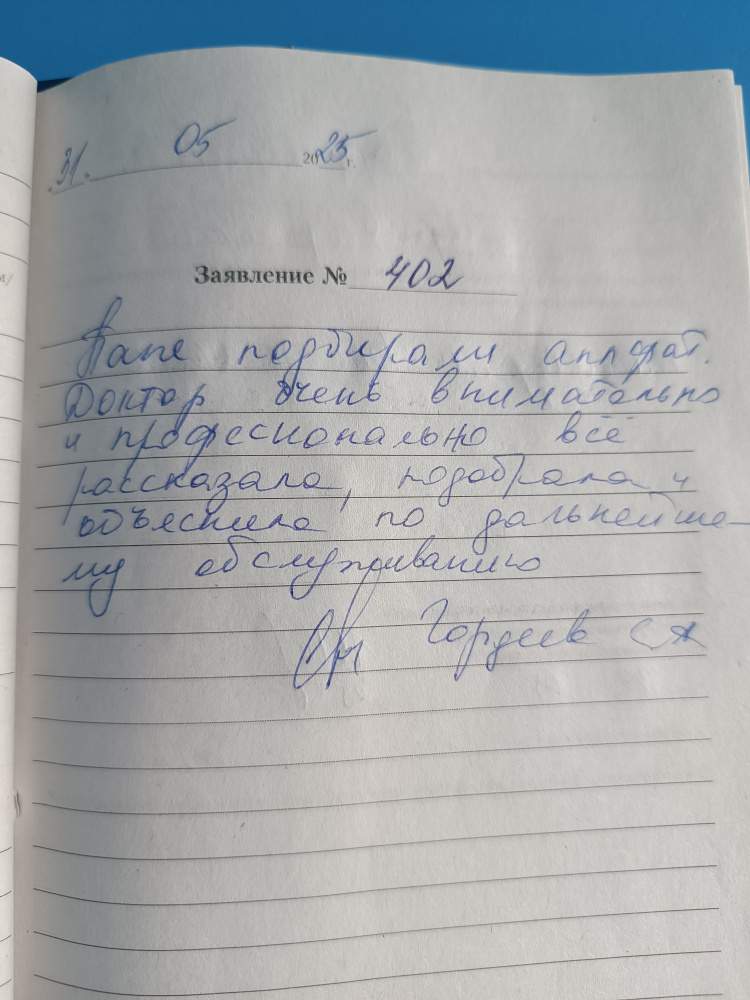 31. 05 2025 г.
Заявление № 402
Папе подбирали аппарат.
Доктор очень внимательно
и професионально всё
рассказала, подобрала и
объяснила по дальнейше-
му обслуживанию
Гордеев